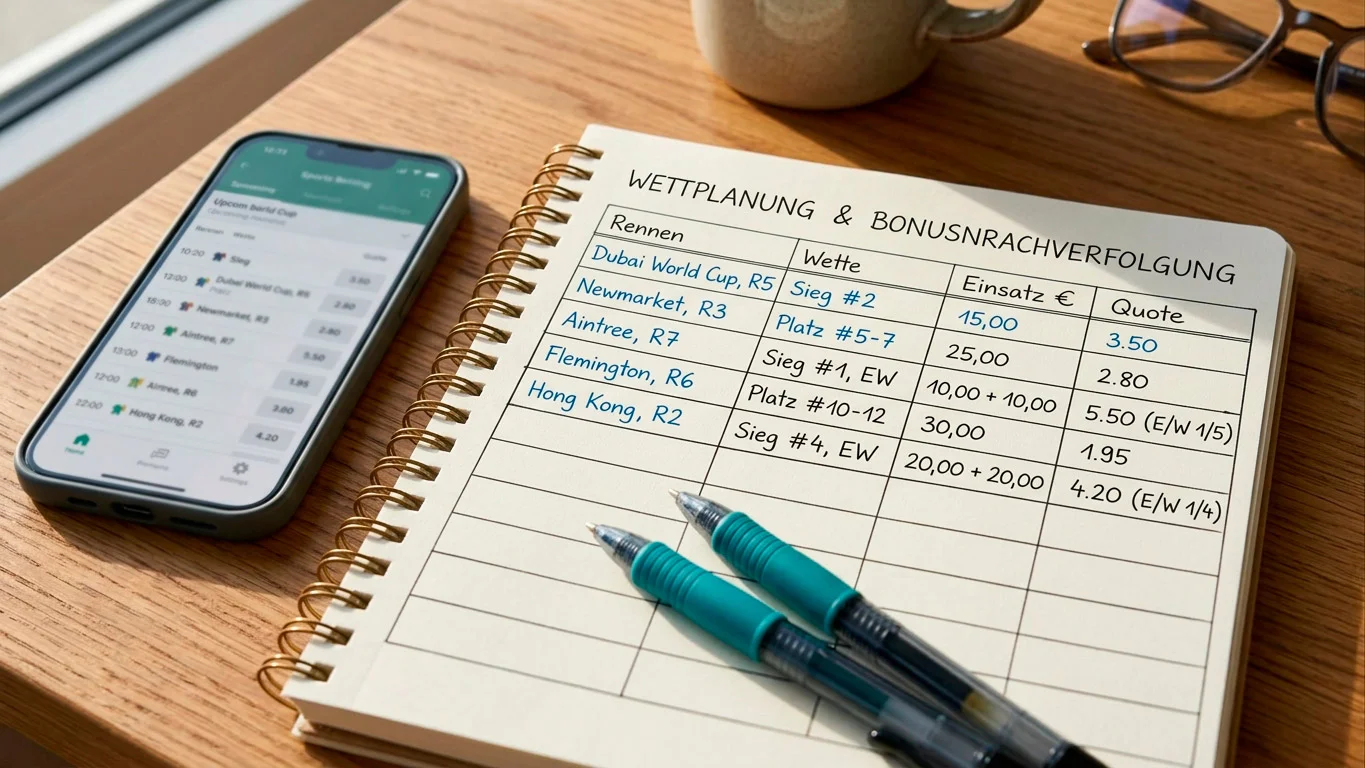 WETTPLANUNG & BONUSNRACHVERFOLGUNG
Rennen Wette Einsatz € Quote
Dubai World Cup, R5 Sieg #2 15,00 3.50
Newmarket, R3 Platz #5-7 25,00 2.80
Aintree, R7 Sieg #1, EW 10,00 + 10,00 5.50 (E/W 1/5)
Flemington, R6 Platz #10-12 30,00 1.95
Hong Kong, R2 Sieg #4, EW 20,00 + 20,00 4.20 (E/W 1/4)
Sports Betting
Upcom borld Cup
Rennen Wette Quote
10:20 Sieg 3.50
12:00 Dubai World Cup, R5 2.80
Platz
Newmarket, R3 2.80
12:00 Aintree, R7 5.50
13:00 Flemington 1.95
12:00 Aintree, R6 3.80
22:00 Hong Kong, R2 4.20
Home
Settings